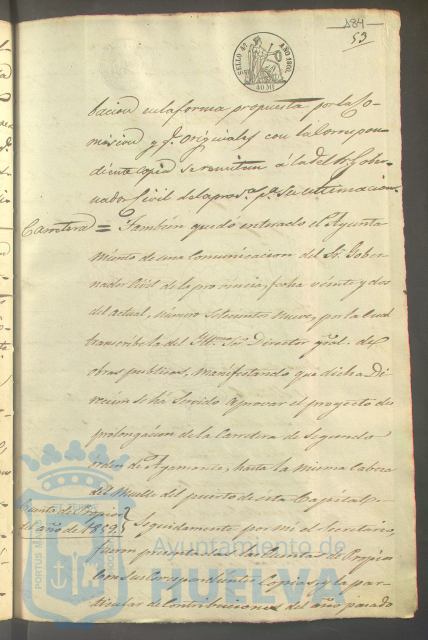 184
53
SELLO 4º AÑO 1860.
40 Ms
bacion en la forma propuesta por la Co-
mision y q.e originales con la Correspon
diente copia se remitan á la del Sr. Gober-
nador Civil de la prov.a p.a su ultimacion.
Carretera = Tambien quedó enterado el Ayunta
miento de una comunicacion del Sr. Gober-
nador Civil de la provincia, fecha veinte y dos
del actual, número setecientos nueve, por la cual
transcribe la del Ill.mo Sr. Director gral. de
obras publicas, manifestando que dicha Di
reccion se há servido aprovar el proyecto de
prolongacion de la Carretera de segundo
orden de Ayamonte, hasta la misma Cabeza
del Muelle del puerto de esta Capital.
Cuenta de Propios
del año de 1859
Seguidamente por mi el Secretario
fueron presentadas las Cuentas de Propios
con sus Correspondientes Copias y la par-
ticular de Contribuciones del año pasado
PORTUS
Ayuntamiento de
HUELVA